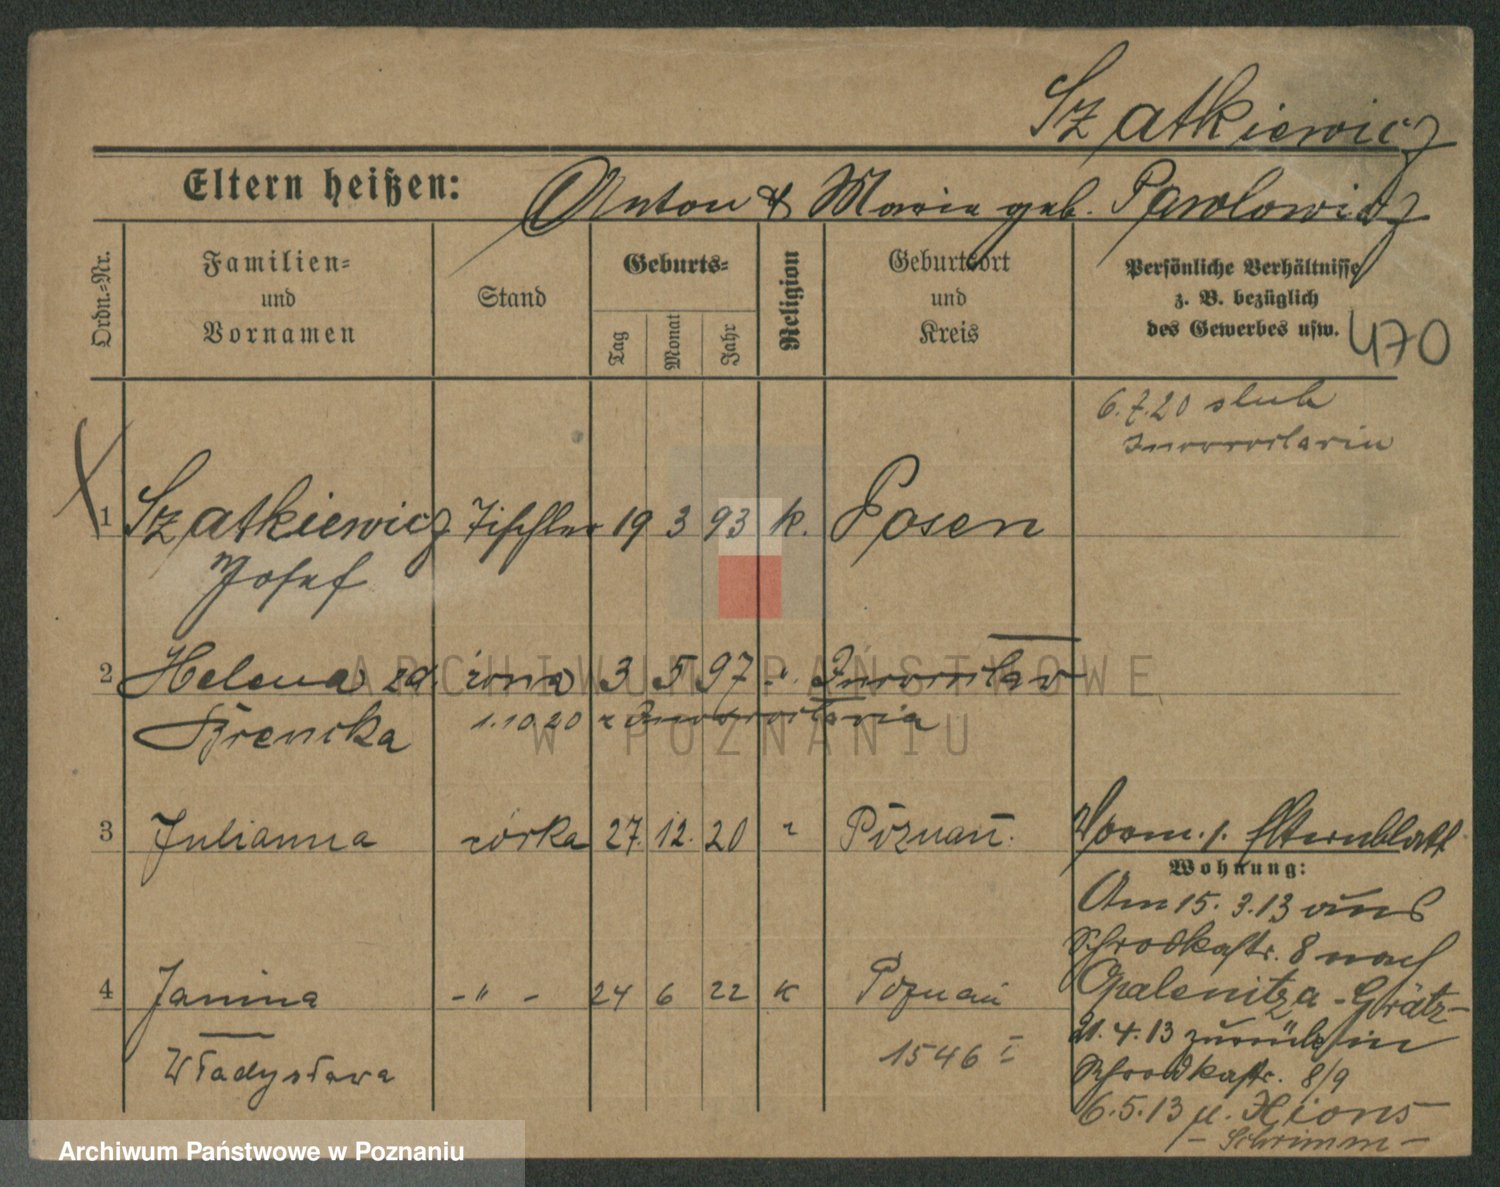 Szatkiewicz
Eltern heißen: Anton & Marie geb. Pawlowicz
Ordn.-Nr.
Familien-
und
Vornamen
Stand
Geburts-
Tag
Monat
Jahr
Religion
Geburtsort
und
Kreis
Persönliche Verhältnisse
z. B. bezüglich
des Gewerbes usw.
470
6.7.20 slub
Inowroclawiu
1 Szatkiewicz Tischler 19 3 93 k. Posen
Josef
2 Helena zd. żona 3 5 97 " Inowroclaw
1.10.20 z Inowroclawia
3 Julianna córka 27. 12. 20 " Poznań.
Vorm. s. Elternblatt
Wohnung:
Am 15. 3. 13 aus
Schrodkastr. 8 nach
Opalenitza - Grätz -
21. 4. 13 zurück in
Schrodkastr. 8/9
6. 5. 13 n. Xions
- Schrimm -
4 Janina - " - 24 6 22 K Poznań
Władysława
1546 I
ARCHIWUM PAŃSTWOWE
W POZNANIU
Archiwum Państwowe w Poznaniu